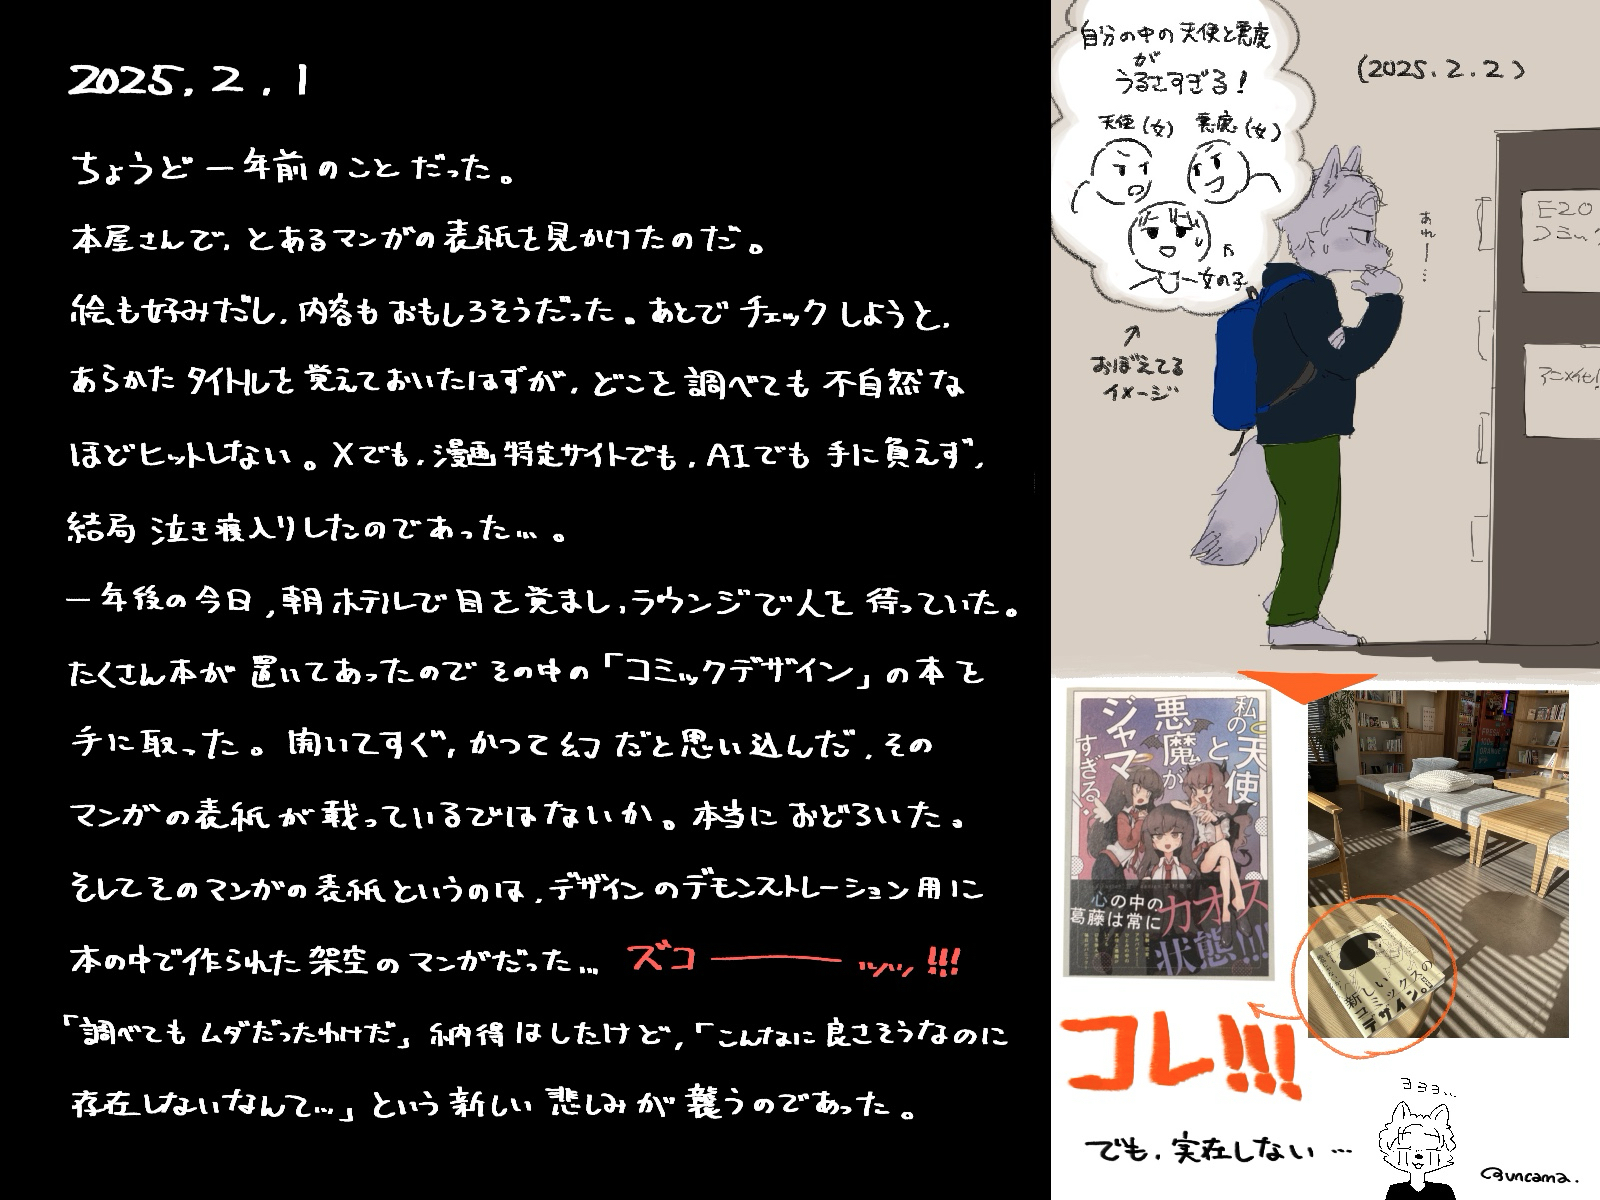 2025.2.1
ちょうど一年前のことだった。
本屋さんで、とあるマンガの表紙を見かけたのだ。
絵も好みだし、内容もおもしろそうだった。あとでチェックしようと、
あらかたタイトルを覚えておいたはずが、どこを調べても不自然な
ほどヒットしない。Xでも、漫画特定サイトでも、AIでも手に負えず、
結局泣き寝入りしたのであった…。
一年後の今日、朝ホテルで目を覚まし、ラウンジで人を待っていた。
たくさん本が置いてあったのでその中の「コミックデザイン」の本を
手に取った。開いてすぐ、かつて幻だと思い込んだ、その
マンガの表紙が載っているではないか。本当におどろいた。
そしてそのマンガの表紙というのは、デザインのデモンストレーション用に
本の中で作られた架空のマンガだった… ズコーーーッッ!!!
「調べてもムダだったわけだ」納得はしたけど、「こんなに良さそうなのに
存在しないなんて…」という新しい悲しみが襲うのであった。
自分の中の天使と悪魔
が
うるさすぎる!
天使(女) 悪魔(女)
女の子
↑
おぼえてる
イメージ
(2025.2.2)
あれー…
E20
コミック
アニメイ
私の天使と悪魔がジャマすぎる!
心の中の
葛藤は常に
カオス
状態!!!
新しい
コミックスの
デザイン。
コレ!!!
でも、実在しない…
ヨヨヨ…
@uncama.